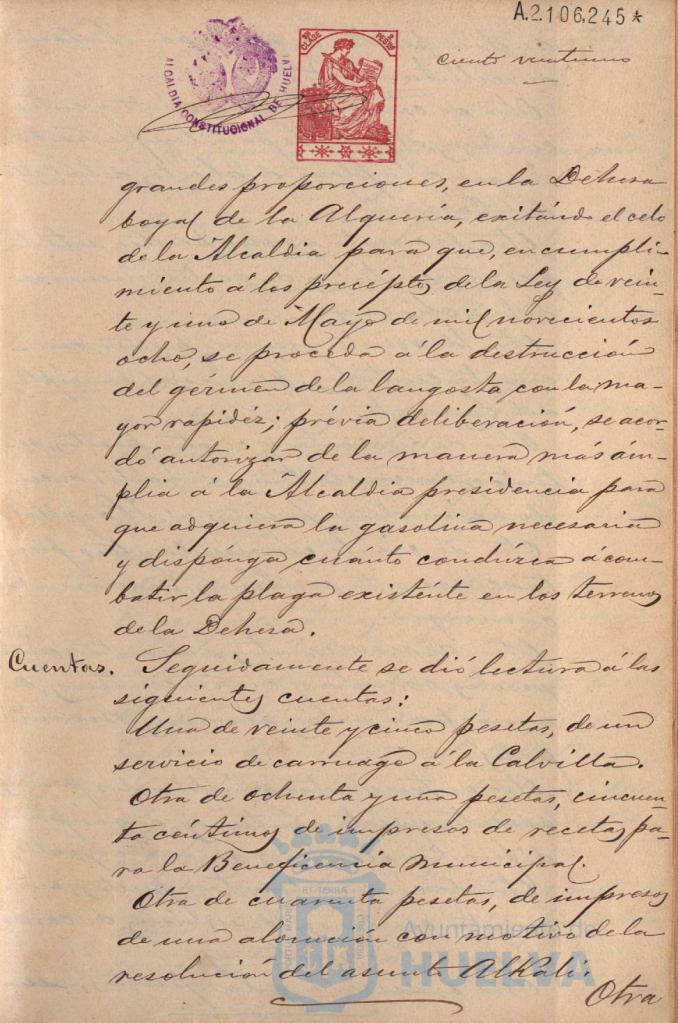 A.2.106,245*
ciento veintiuno
ALCALDIA CONSTITUCIONAL DE HUELVA
CLASE
grandes proporciones, en la Dehesa
boyal de la Alquería, exitándo el celo
de la Alcaldia para que, en cumpli-
miento á los precéptos de la Ley de vein-
te y uno de Mayo de mil novecientos
ocho, se proceda á la destrucción
del gérmen de la langosta con la ma-
yor rapidéz; prévia deliberación, se acor-
dó autorizar de la manera más ám-
plia á la Alcaldia presidencia para
que adquiera la gasolina necesaria
y dispónga cuánto condúzca á com-
batir la plaga existénte en los terrenos
de la Dehesa.
Cuentas. Seguidamente se dió lectura á las
siguientes cuentas:
Una de veinte y cinco pesetas, de un
servicio de carruage á la Calvilla.
Otra de ochenta y una pesetas, cincuen-
ta céntimos de impresos de recetas pa-
ra la Beneficencia municipal.
Otra de cuarenta pesetas, de impresos
de una alocución con motivo de la
resolución del asunto Alkali.
Otra
Ayuntamiento de
HUELVA